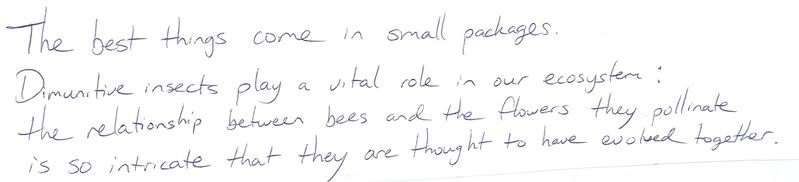 The best things come in small packages.
Dimunitive insects play a vital role in our ecosystem:
the relationship between bees and the flowers they pollinate
is so intricate that they are thought to have evolved together.